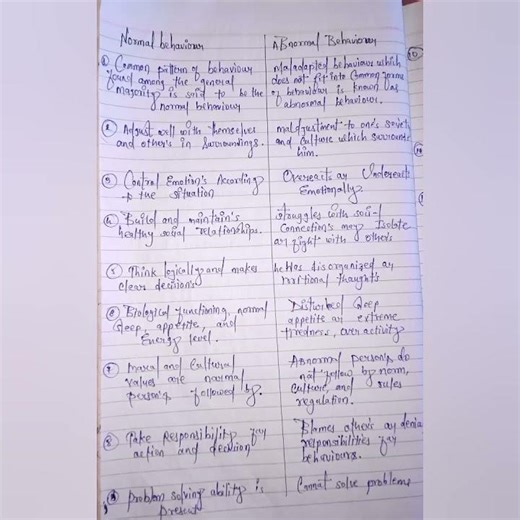 Normal behaviour
Abnormal Behaviour
① Common pattern of behaviour
found among the general
majority is said to be the
normal behaviour
maladapted behaviour which
does not fit into Common forms
of behaviour is known as
abnormal behaviour.
② Adjust well with themselves
and other's in Surroundings.
maldjustment to one's society
and culture which surrounds
him.
③ Control Emotion's According
to the situation
Overreacts or Undereacts
Emotionally.
④ Build and maintain's
healthy social relationships.
struggles with social
Connection's may Isolate
or fight with other's
⑤ Think logically and makes
clear decision's
he Has disorganized or
irritional thought's
⑥ Biological functioning, normal
sleep, appetite, and
Energy level.
Disturbed sleep
appetite or extreme
tiredness, over activity
⑦ Moral and Cultural
values are normal
person's followed by.
Abnormal person's do
not follow by norm,
Culture, and rules
regulation.
⑧ Take Responsibility for
action and decision
Blames other's or denie
responsibilities for
behaviours.
⑨ problem solving ability is
present
Cannot solve problems
10